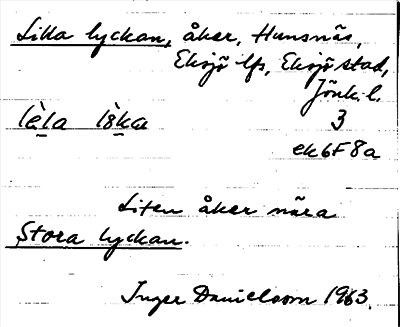 Lilla lyckan, åker, Hunsnäs,
Eksjö lfs, Eksjö stad,
Jönk. l.
lè̱la lò̱ka 3
ek 6F8a
Liten åker nära
Stora lyckan.
Inger Danielsson 1963.